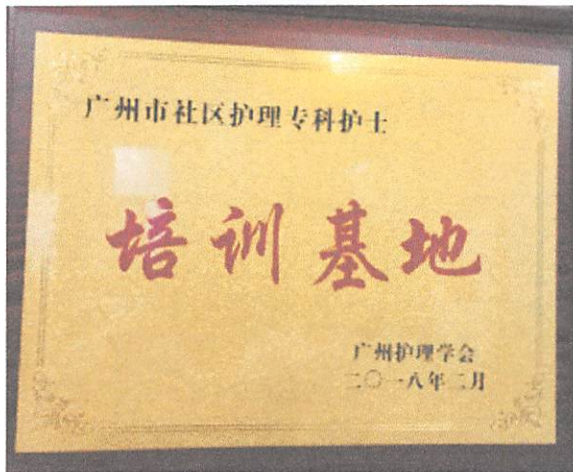 广州市社区护理专科护士
培训基地
广州护理学会
二〇一八年二月